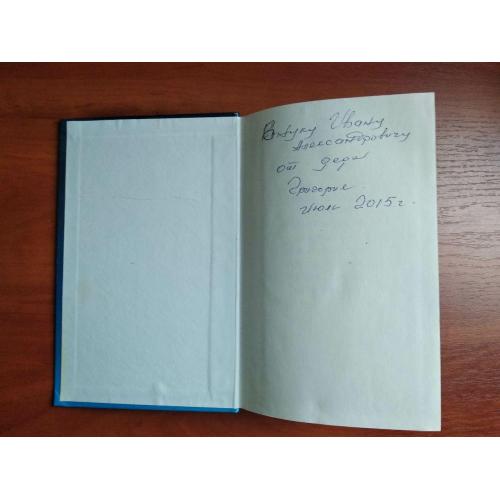 Внуку Ивану
Александровичу
от деда
Григория
июль 2015 г.